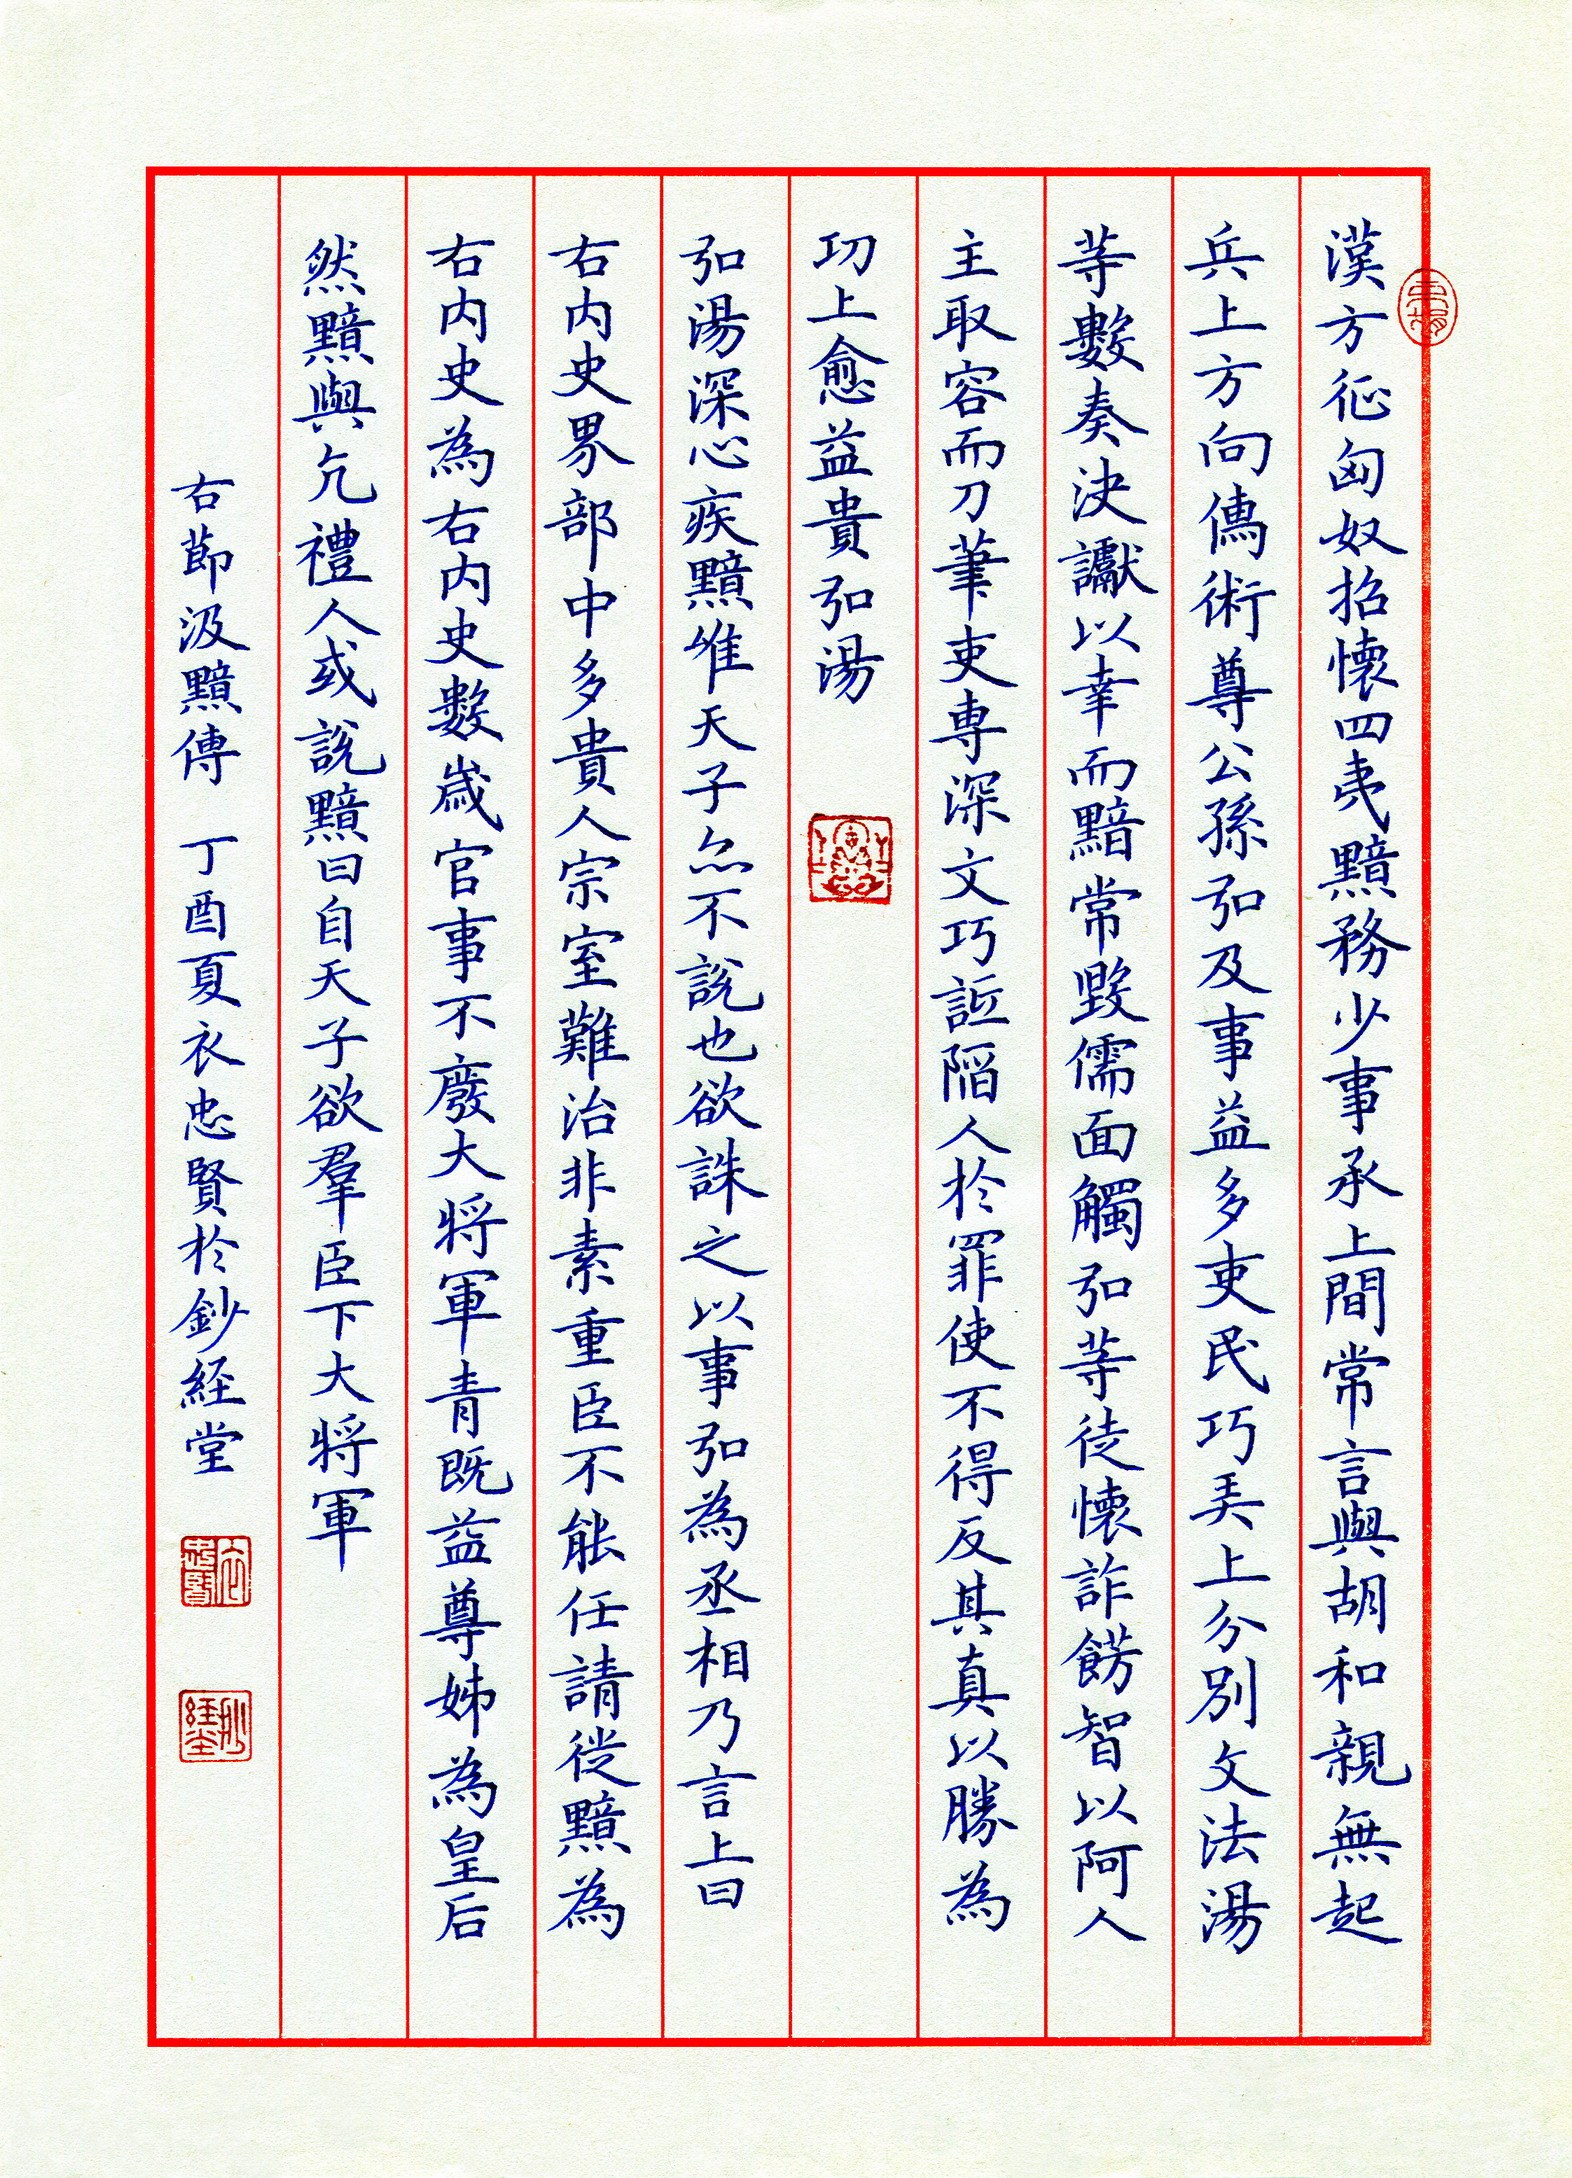 漢方征匈奴招懷四夷黯務少事承上間常言與胡和親無起
兵上方向儒術尊公孫弘及事益多吏民巧弄上分別文法湯
等數奏決讞以幸而黯常毀儒面觸弘等徒懷詐飾智以阿人
主取容而刀筆吏專深文巧詆陷人於罪使不得反其真以勝為
功上愈益貴弘湯
弘湯深心疾黯唯天子亦不說也欲誅之以事弘為丞相乃言上曰
右內史界部中多貴人宗室難治非素重臣不能任請徙黯為
右內史為右內史數歲官事不廢大將軍青既益尊姊為皇后
然黯與亢禮人或說黯曰自天子欲羣臣下大將軍
右節汲黯傳 丁酉夏衣忠賢於鈔經堂